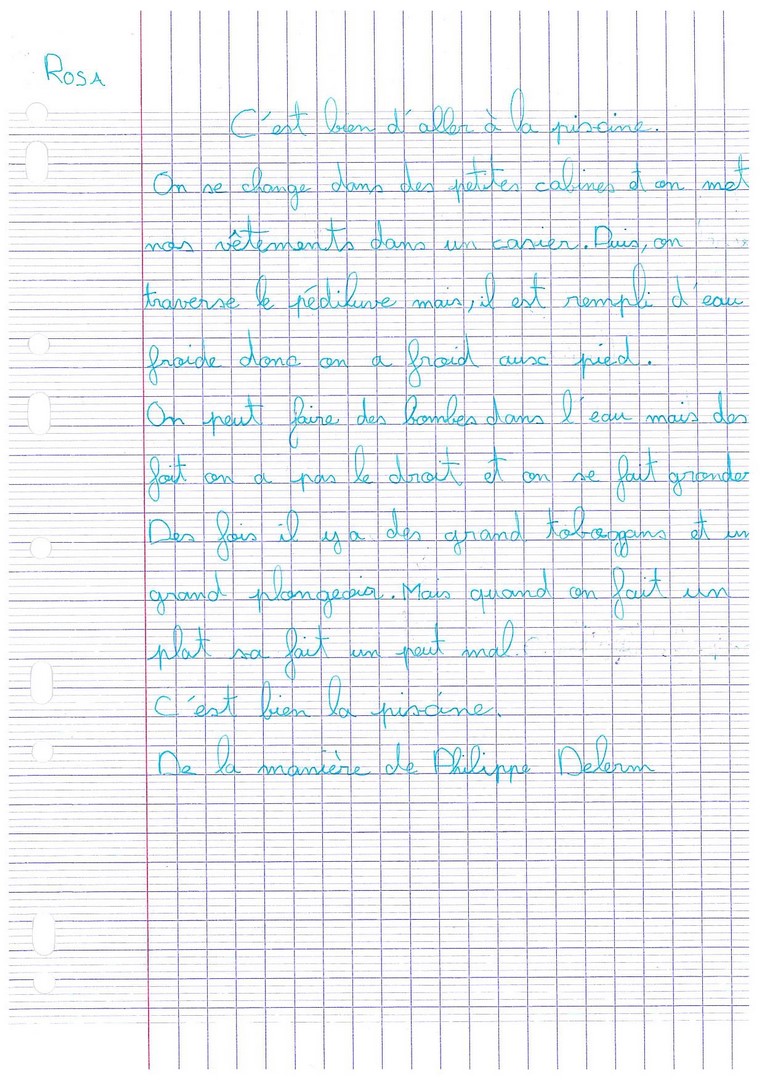 ROSA
C'est bien d'aller à la piscine.
On se change dans des petites cabines et on met
nos vêtements dans un casier. Puis, on
traverse le pédiluve mais, il est rempli d'eau
froide donc on a froid aux pied.
On peut faire des bombes dans l'eau mais des
foit on a pas le droit et on se fait gronder
Des fois il y a des grand toboggans et un
grand plongeoir. Mais quand on fait un
plat sa fait un peut mal.
C'est bien la piscine.
De la manière de Philippe Delerm